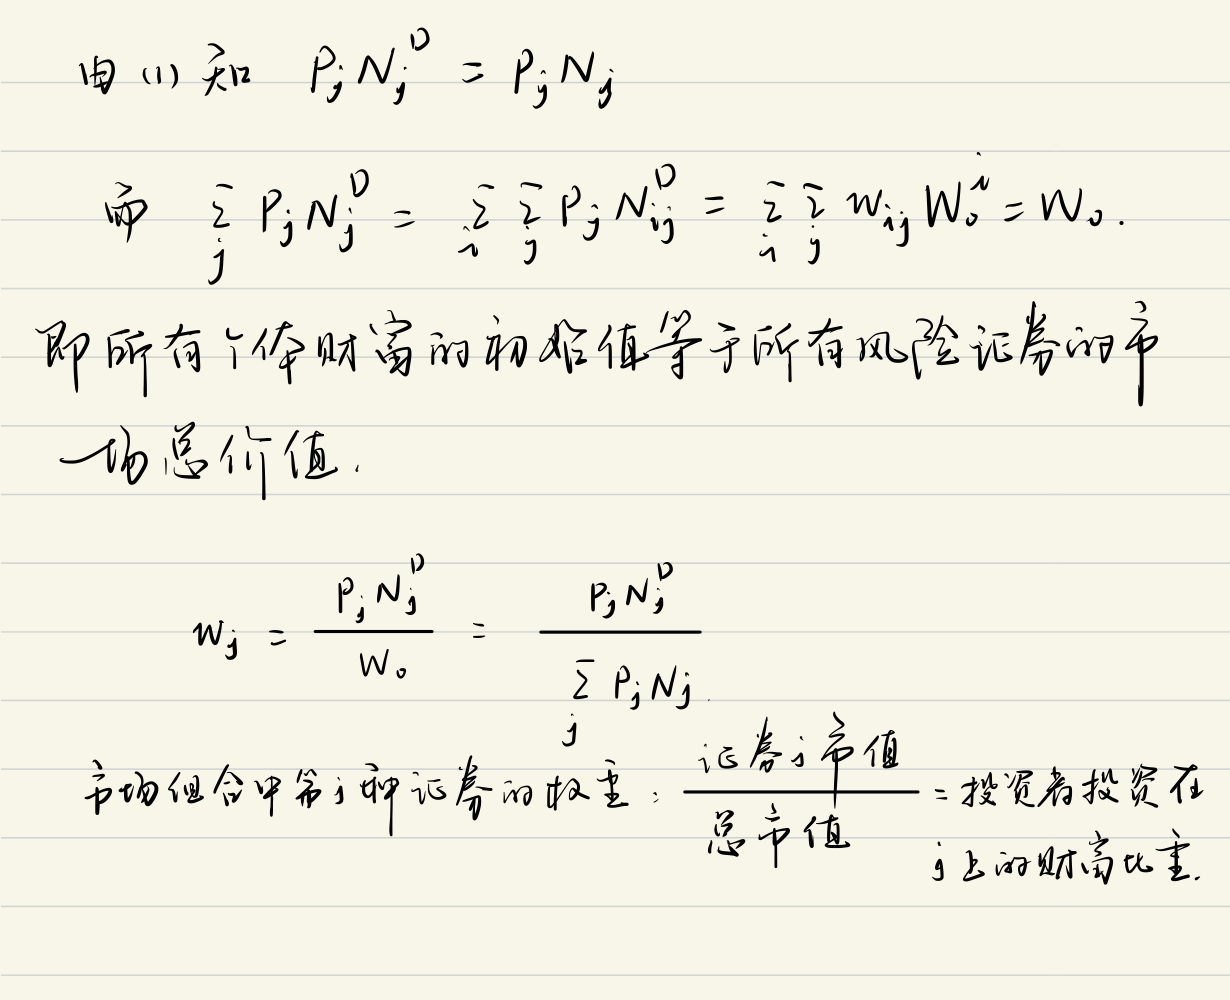 由(1)知 P_j N_j^D = P_j N_j
而 Σ_j P_j N_j^D = Σ_i Σ_j P_j N_{ij}^D = Σ_i Σ_j w_{ij} W_0^i = W_0.
即所有个体财富的初始值等于所有风险证券的市
场总价值.
w_j = P_j N_j^D / W_0 = P_j N_j^D / Σ_j P_j N_j.
市场组合中第j种证券的权重: 证券j市值 / 总市值 = 投资者投资在
j上的财富比重.